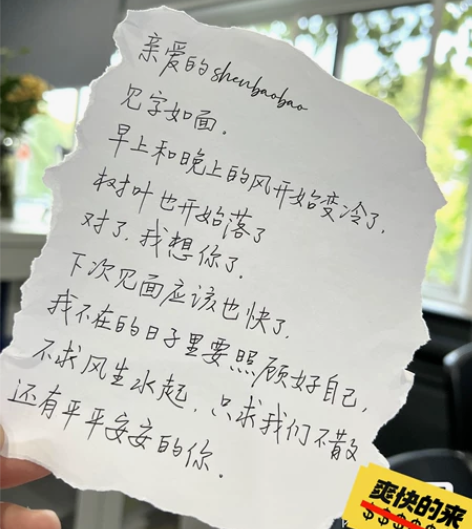 亲爱的shenbaobao
见字如面.
早上和晚上的风开始变冷了,
树叶也开始落了
对了.我想你了.
下次见面应该也快了.
我不在的日子里要照顾好自己,
不求风生水起,只求我们不散
还有平平安安的你.
爽快的来
$$$$$